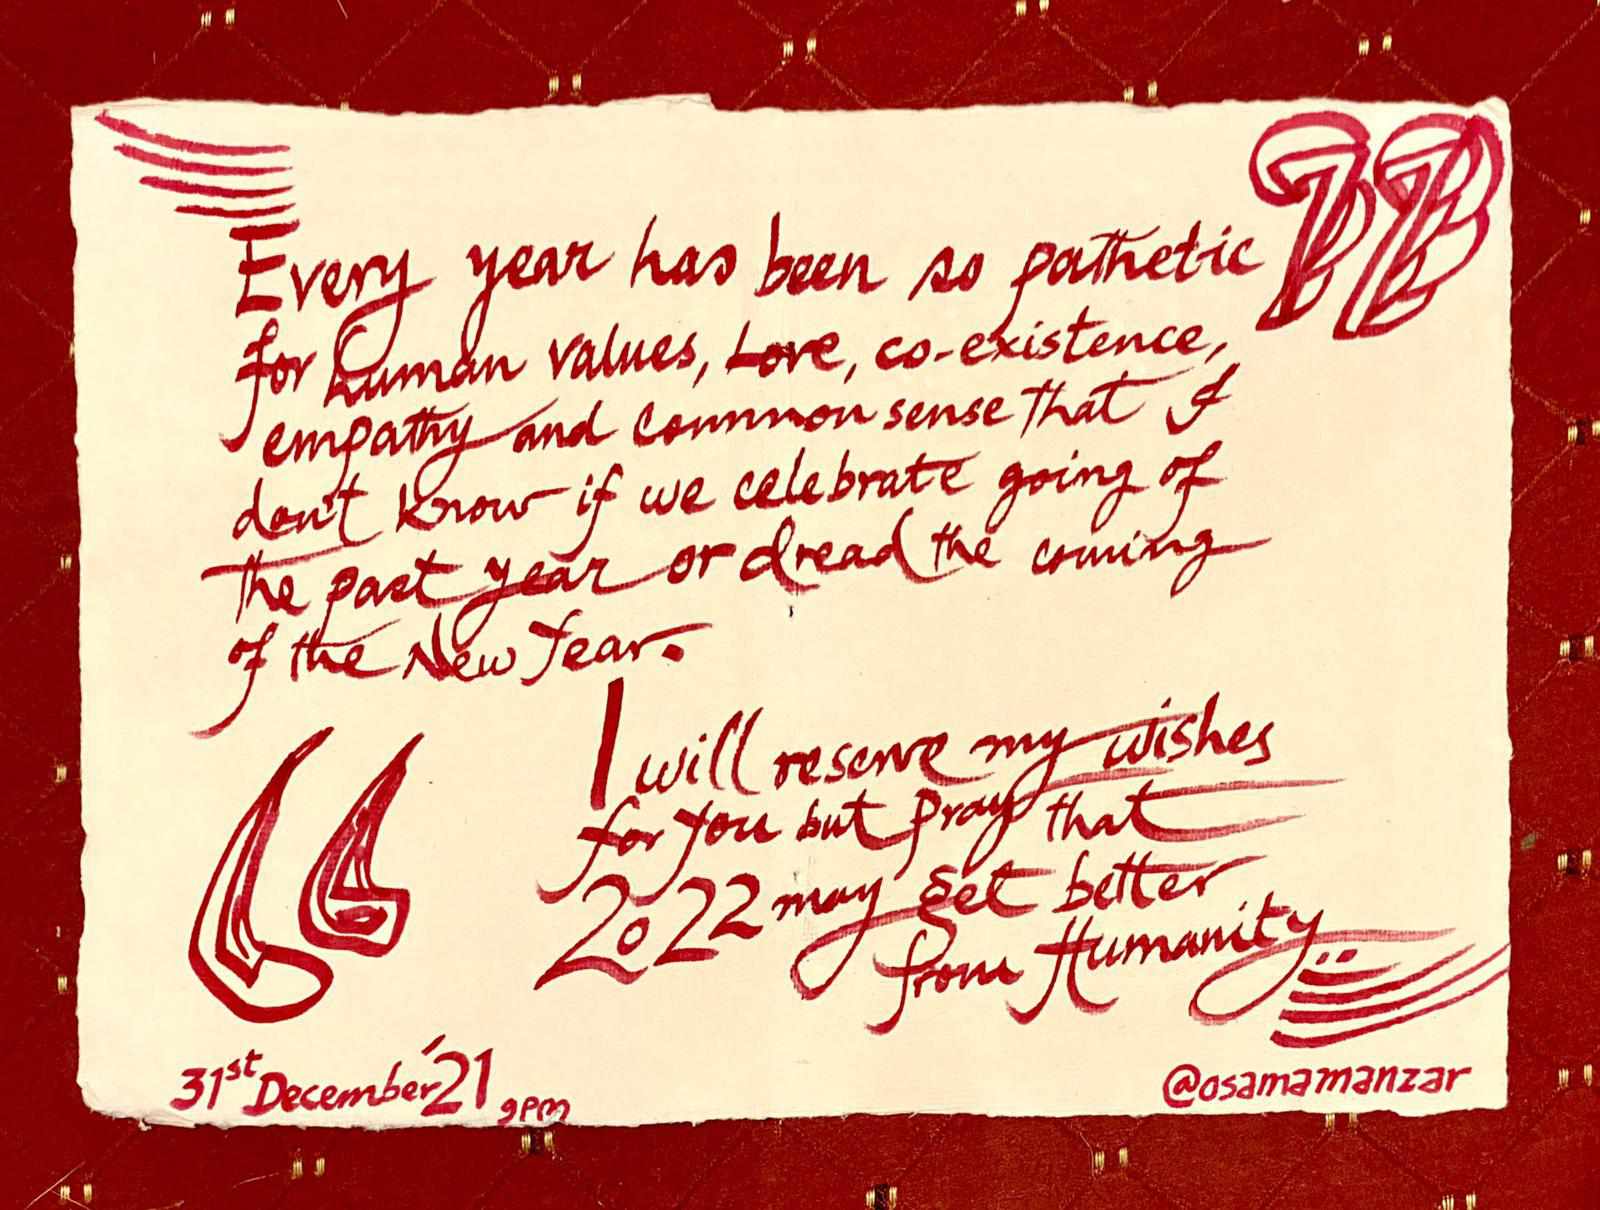 Every year has been so pathetic
for human values, Love, co-existence,
empathy and common sense that I
don't know if we celebrate going of
the past year or dread the coming
of the New Year.
I will reserve my wishes
for you but pray that
2022 may get better
from Humanity..
31st December'21 9PM
@osamamanzar